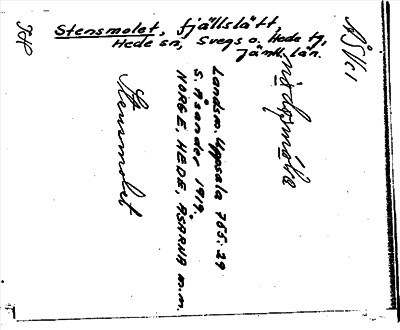 Stensmolet, fjällslätt
Hede sn, Svegs o. Hede tg,
Jämtl. län.
Landsm. Uppsala 765:29
S. Åsander 1919.
NORGE, HEDE, ÅSARNA m.m.
Stensmolet